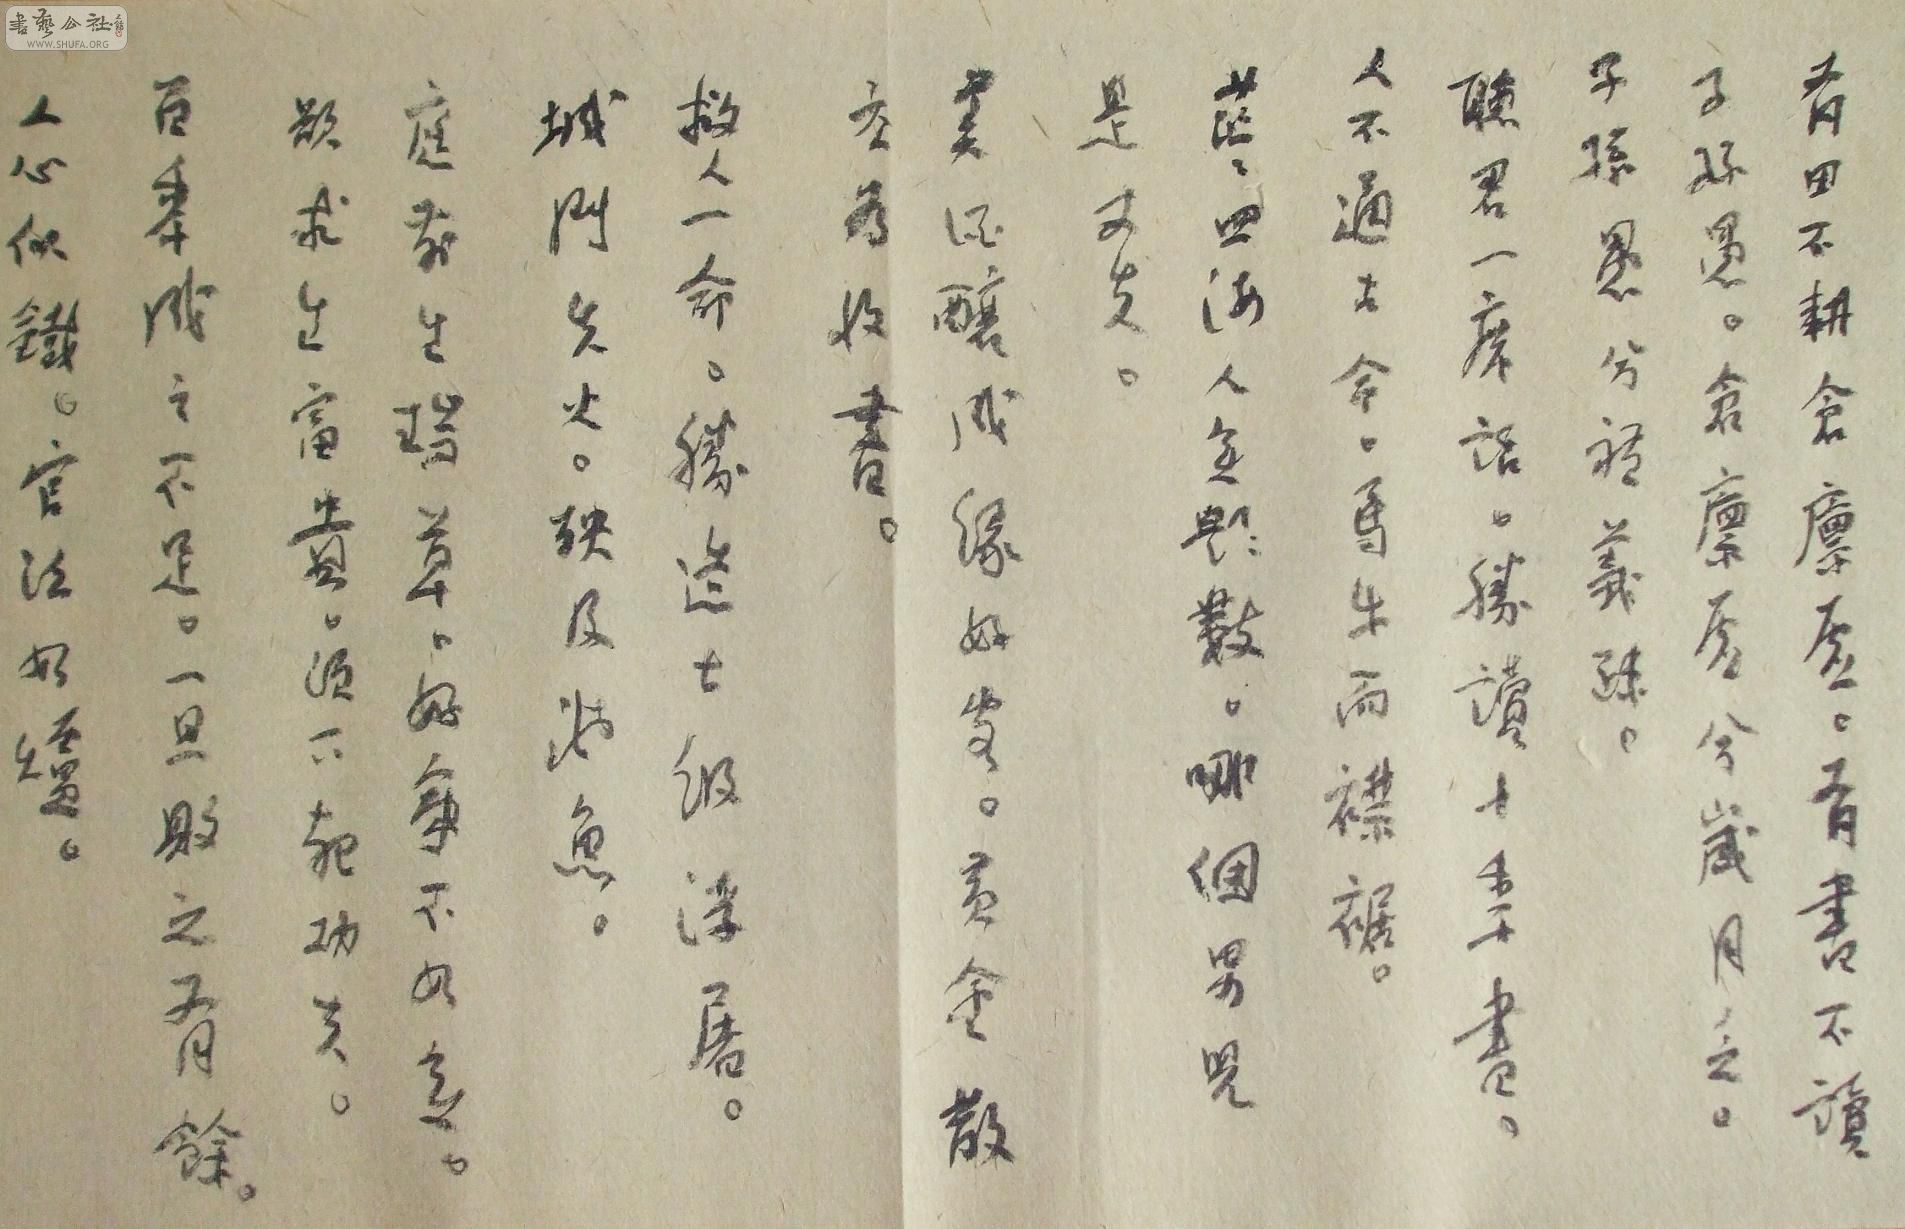 書藝公社
WWW.SHUFA.ORG
有田不耕倉廩虛。有書不讀
子孫愚。倉廩虛兮歲月乏。
子孫愚兮禮義疎。
聽君一席話。勝讀十年書。
人不通古今。馬牛而襟裾。
茫々四海人無數。哪個男兒
是丈夫。
美酒釀成緣好客。黃金散
尽為收書。
救人一命。勝造七級浮屠。
城門失火。殃及池魚。
庭前生瑞草。好事不如無。
欲求生富貴。須下死功夫。
百年成之不足。一旦敗之有餘。
人心似鐵。官法如爐。